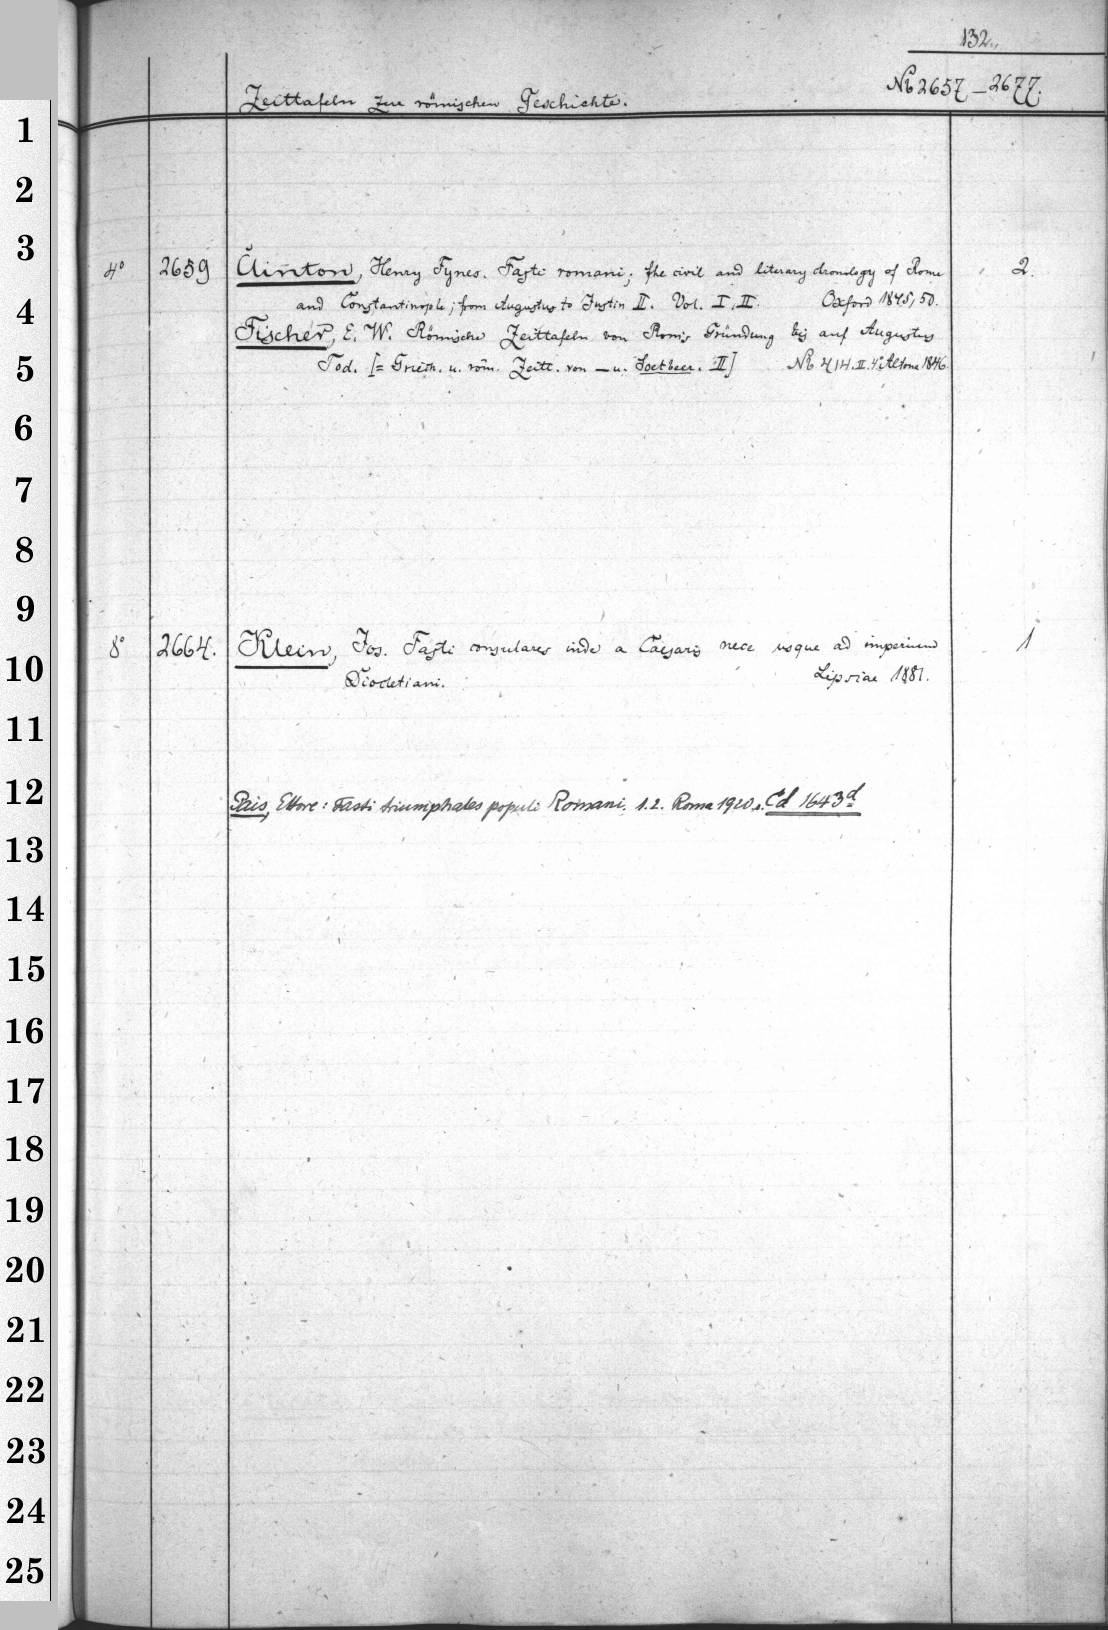 132.
Nº 2657–2677.
Zeittafeln zur römischen Geschichte.
1
2
3
4º 2659 Clinton, Henry Fynes. Fasti romani; the civil and literary chronology of Rome 2.
4
and Constantinople; from Augustus to Justin II. Vol. I, II. Oxford 1845, 50.
Fischer, E. W. Römische Zeittafeln von Rom's Gründung bis auf Augustus
5
Tod. [= Griech. u. röm. Zeitt. von – u. Soetbeer. II] Nº 414.II.4º Altona 1846.
6
7
8
9
8º 2664. Klein, Jos. Fasti consulares inde a Caesaris nece usque ad imperium 1
10
Diocletiani. Lipsiae 1881.
11
12
Pais, Ettore: Fasti triumphales populi Romani. 1.2. Roma 1920. Cd 1643d
13
14
15
16
17
18
19
20
21
22
23
24
25